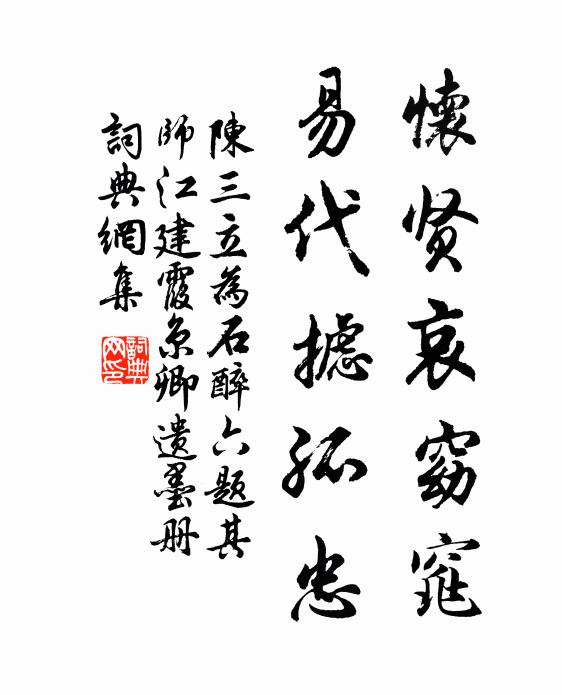 懷贤哀窈窕
易代摅孤忠
陳三立為石醉六題其
師江建霞京卿遺墨册
詞典網集
詞典網印